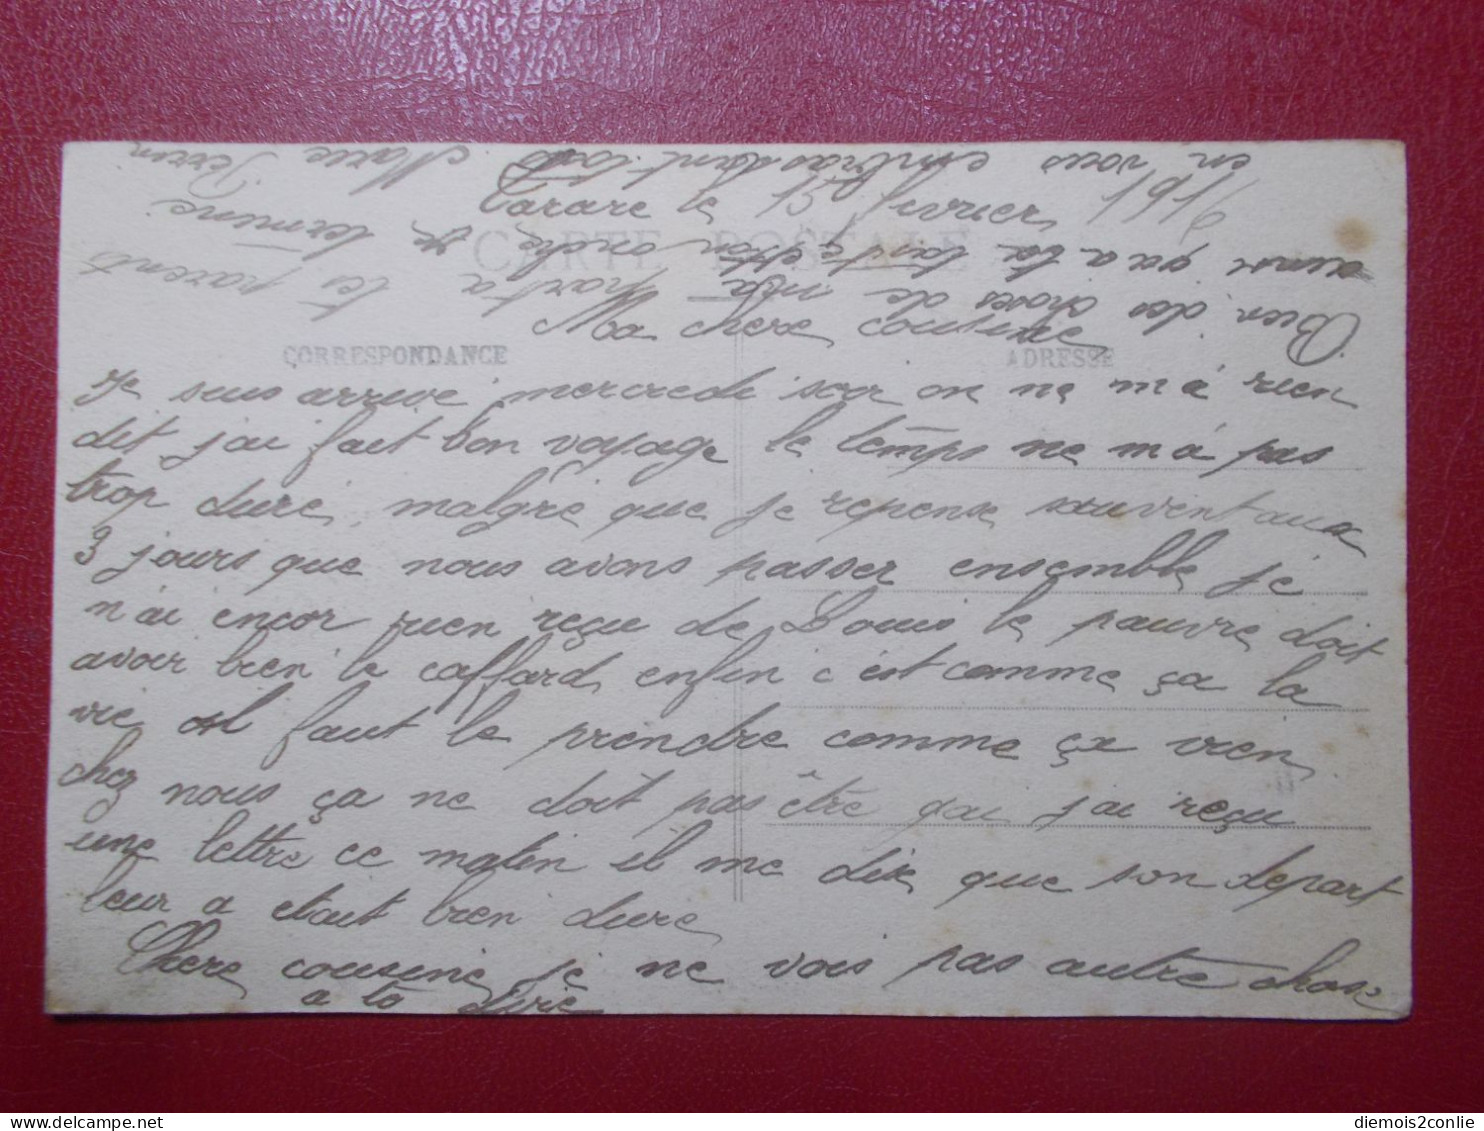 Tarare le 15 fevrier 1916
CARTE POSTALE
Ma chere cousine
CORRESPONDANCE
ADRESSE
Je suis arrivé mercredi soir on ne m'a rien
dit j'ai fait bon voyage le temps ne m'a pas
trop duré malgré que je repense souvent aux
3 jours que nous avons passer ensemble je
n'ai encor rien reçu de Louis le pauvre doit
avoir bien le caffard enfin c'est comme ça la
vie il faut le prendre comme ça vien
chez nous ça ne doit pas être gai j'ai reçu
une lettre ce matin il me dit que son depart
leur a etait bien dure
Chere cousine je ne vois pas autre chose
a to dire
Bien des choses de ma part a tes parents
ainsi qu'a ta tante et ton oncle je termine
en vous embrassant tous Marie Perrin
diemois2conlie